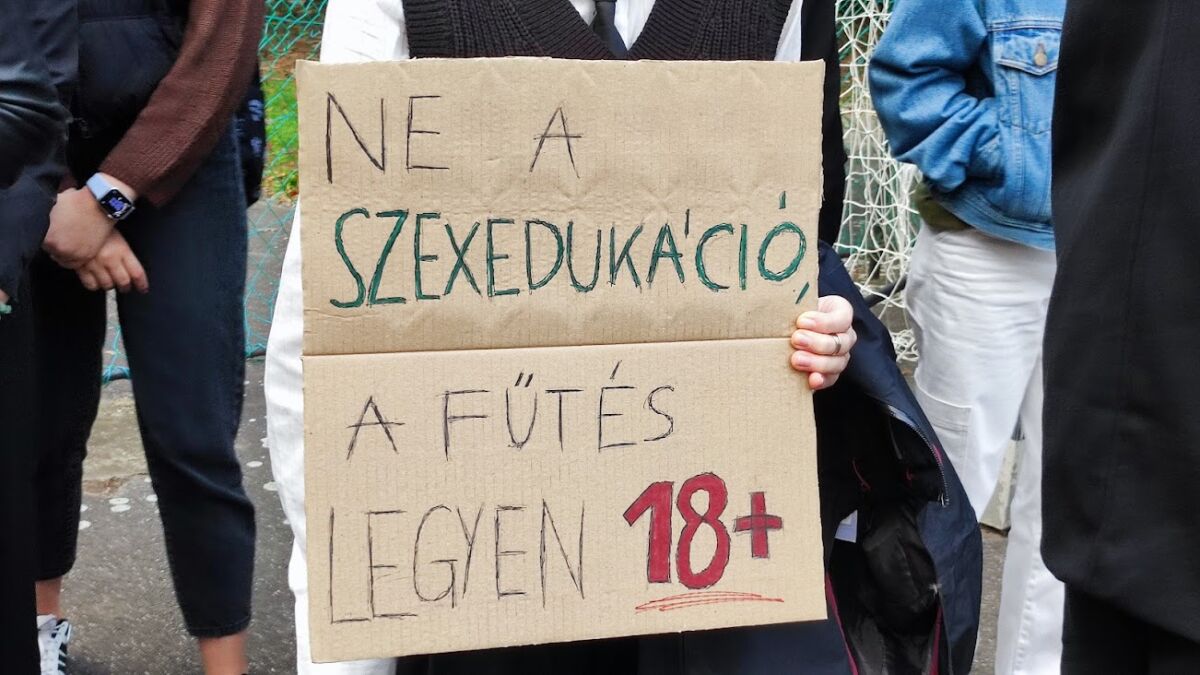 NE A
SZEXEDUKÁCIÓ,
A FŰTÉS
LEGYEN 18+